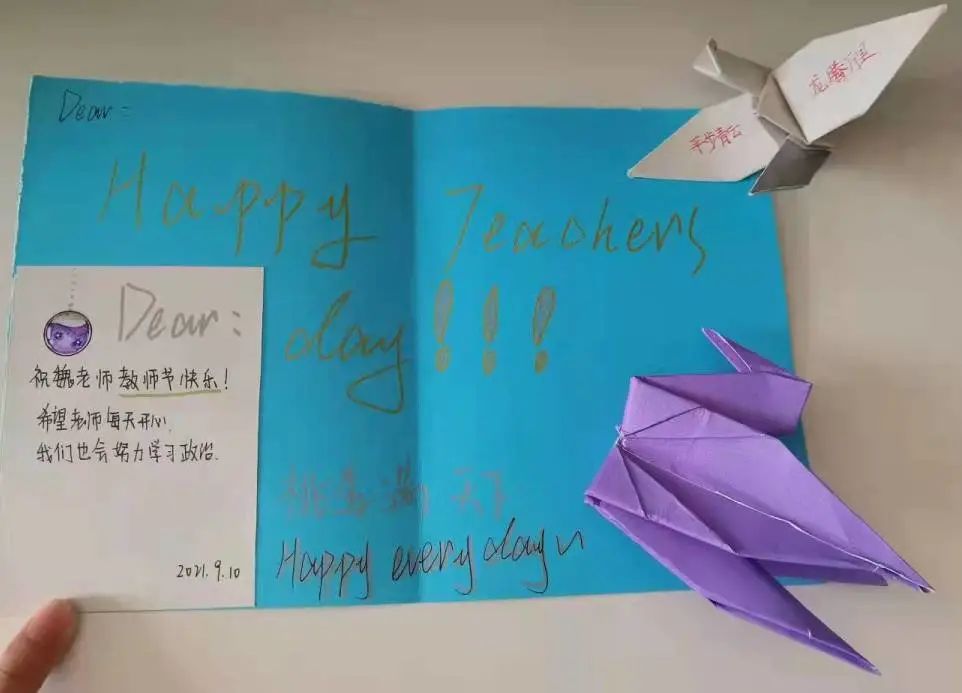 Dear:
Happy Teachers
day!!!
Dear:
祝魏老师教师节快乐!
希望老师每天开心.
我们也会努力学习政治.
2021.9.10
桃李满天下
Happy every day~
平步青云
龙腾万里